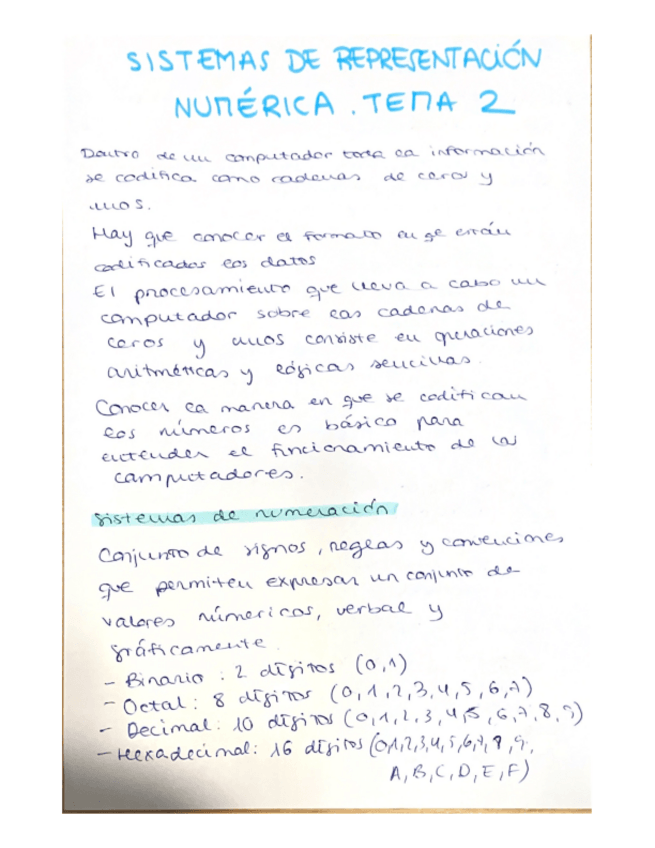 SISTEMAS DE REPRESENTACIÓN
NUMÉRICA. TEMA 2
Dentro de un computador toda la información
se codifica como cadenas de ceros y
unos.
Hay que conocer el formato en qe están
codificados los datos
El procesamiento que lleva a cabo un
computador sobre las cadenas de
ceros y unos consiste en operaciones
aritméticas y lógicas sencillas.
Conocer la manera en que se codifican
los números es básico para
entender el funcionamiento de los
computadores.
Sistemas de numeración
Conjunto de signos, reglas y convenciones
que permiten expresar un conjunto de
valores númericos, verbal y
gráficamente.
- Binario: 2 dígitos (0,1)
- Octal: 8 dígitos (0,1,2,3,4,5,6,7)
- Decimal: 10 dígitos (0,1,2,3,4,5,6,7,8,9)
- Hexadecimal: 16 dígitos (0,1,2,3,4,5,6,7,8,9,
A,B,C,D,E,F)